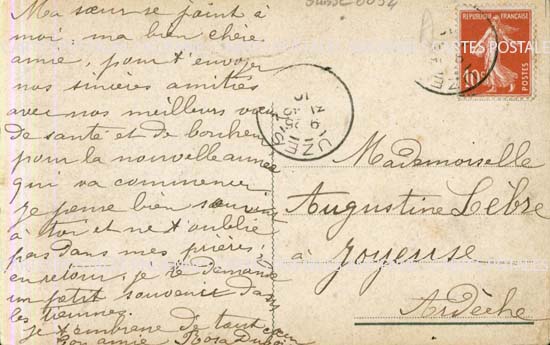 Ma sœur se joint à
moi, ma bien chère
amie, pour t'envoyer
nos sincères amitiés
avec nos meilleurs vœux
de santé et de bonheur
pour la nouvelle année
qui va commencer.
Je pense bien souvent
à toi et ne t'oublie
pas dans mes prières;
en retour, je te demande
un petit souvenir dans
les tiennes.
Je t'embrasse de tout cœur
Ton amie Rosa
REPUBLIQUE FRANÇAISE
10c
POSTES
CARTES POSTALES
Mademoiselle
Augustine Lèbre
à Joyeuse
Ardèche